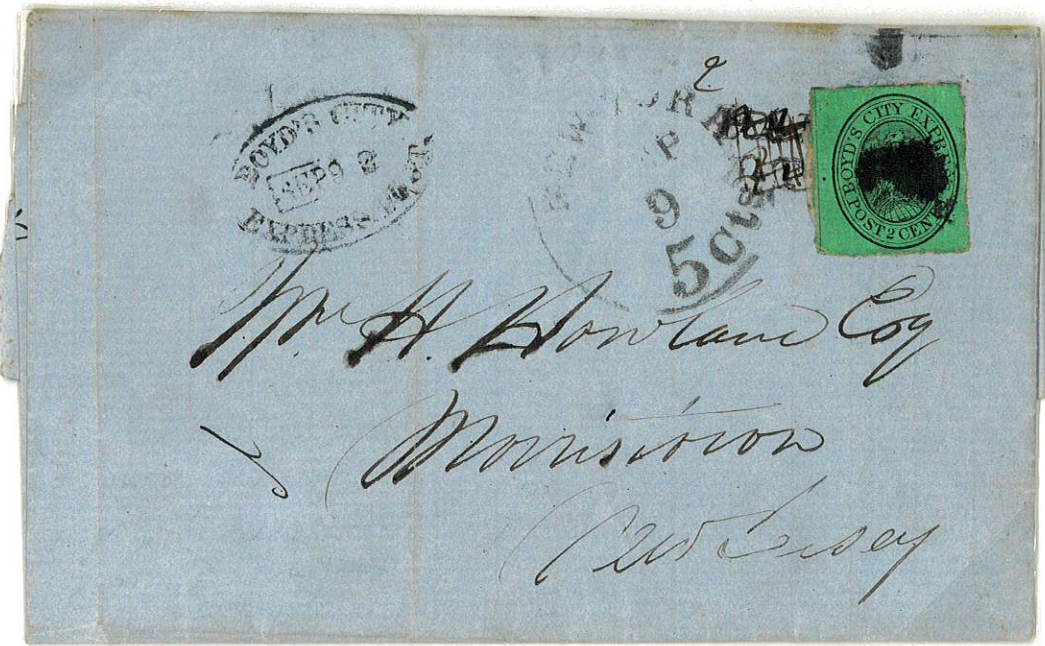 BOYD'S CITY
SEP 9 2
EXPRESS POST
2
NEW YORK
SEP
9
5 Cts
BOYD'S CITY EXPRESS
POST 2 CENTS
Wm H. Howland Esq
Morristown
New Jersey